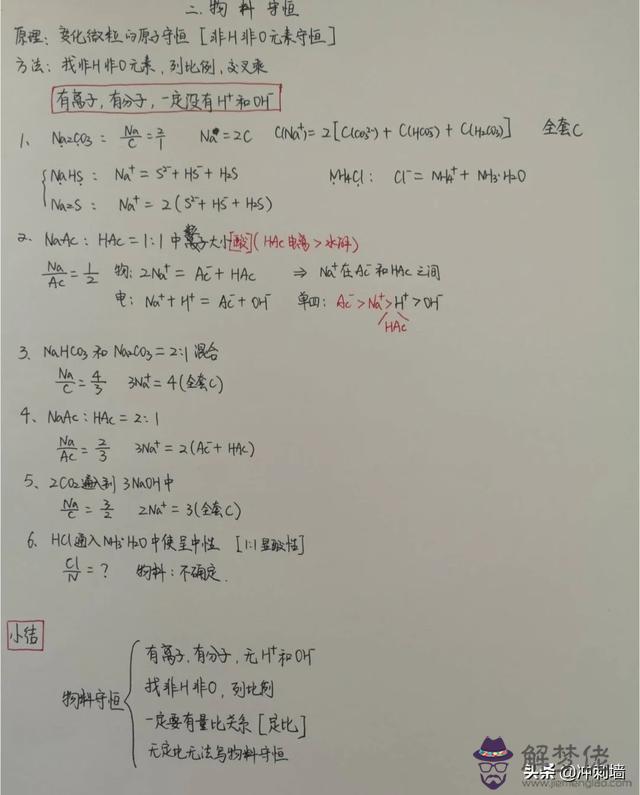 二. 物料守恒
原理: 变化微粒的原子守恒 [非H非O元素守恒]
方法: 找非H非O元素, 列比例, 交叉乘
有离子, 有分子, 一定没有H⁺和OH⁻
1、 Na₂CO₃: Na/C = 2/1 Na = 2C C(Na⁺) = 2[C(CO₃²⁻) + C(HCO₃⁻) + C(H₂CO₃)] 全套C
NaHS: Na⁺ = S²⁻ + HS⁻ + H₂S NH₄Cl: Cl⁻ = NH₄⁺ + NH₃·H₂O
Na₂S: Na⁺ = 2(S²⁻ + HS⁻ + H₂S)
2、 NaAc: HAc = 1:1 中离子大小[酸](HAc电离>水解)
Na/Ac = 1/2 物: 2Na⁺ = Ac⁻ + HAc ⇒ Na⁺在Ac⁻和HAc之间
电: Na⁺ + H⁺ = Ac⁻ + OH⁻ 单四: Ac⁻ > Na⁺ > H⁺ > OH⁻
HAc
3、 NaHCO₃ 和 Na₂CO₃ = 2:1 混合
Na/C = 4/3 3Na⁺ = 4(全套C)
4、 NaAc: HAc = 2:1
Na/Ac = 2/3 3Na⁺ = 2(Ac⁻ + HAc)
5、 2CO₂通入到 3NaOH中
Na/C = 3/2 2Na⁺ = 3(全套C)
6、 HCl通入NH₃·H₂O中使呈中性 [1:1显酸性]
Cl/N = ? 物料: 不确定.
小结
物料守恒
有离子, 有分子, 无H⁺和OH⁻
找非H非O, 列比例
一定要有量比关系 [定比]
无定比无法写物料守恒
解梦佬
头条 @冲刺墙
www.jiemenglao.com